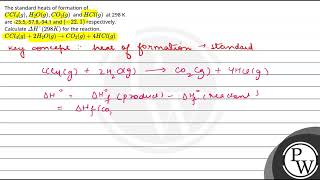 The standard heats of formation of
CCl₄(g), H₂O(g), CO₂(g) and HCl(g) at 298 K
are -25.5, -57.8, -94.1 and (-22.1) respectively.
Calculate ΔH°(298K) for the reaction.
CCl₄(g) + 2H₂O(g) → CO₂(g) + 4HCl(g)
key concept :- heat of formation → standard
CCl4(g) + 2H2O(g) → CO2(g) + 4HCl(g)
ΔH° = ΔH°f (product) - ΔH°f (reactant)
= ΔHf (CO2
PW